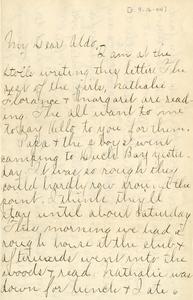 My Dear Aldo,
I am at the
writing this letter. The
rest of the girls, Nathalie
Florance & Margaret are read-
ing. The all want me
to say Hello to you for them.
Papa & the boys went
camping to Duck Bay yester-
day. It was so rough they
could hardly row around the
point. I think they'll
stay until about Saturday
This morning we had a
rough house at the club &
afterwards went into the
woods & read. Nathalie was
down for lunch & I ate